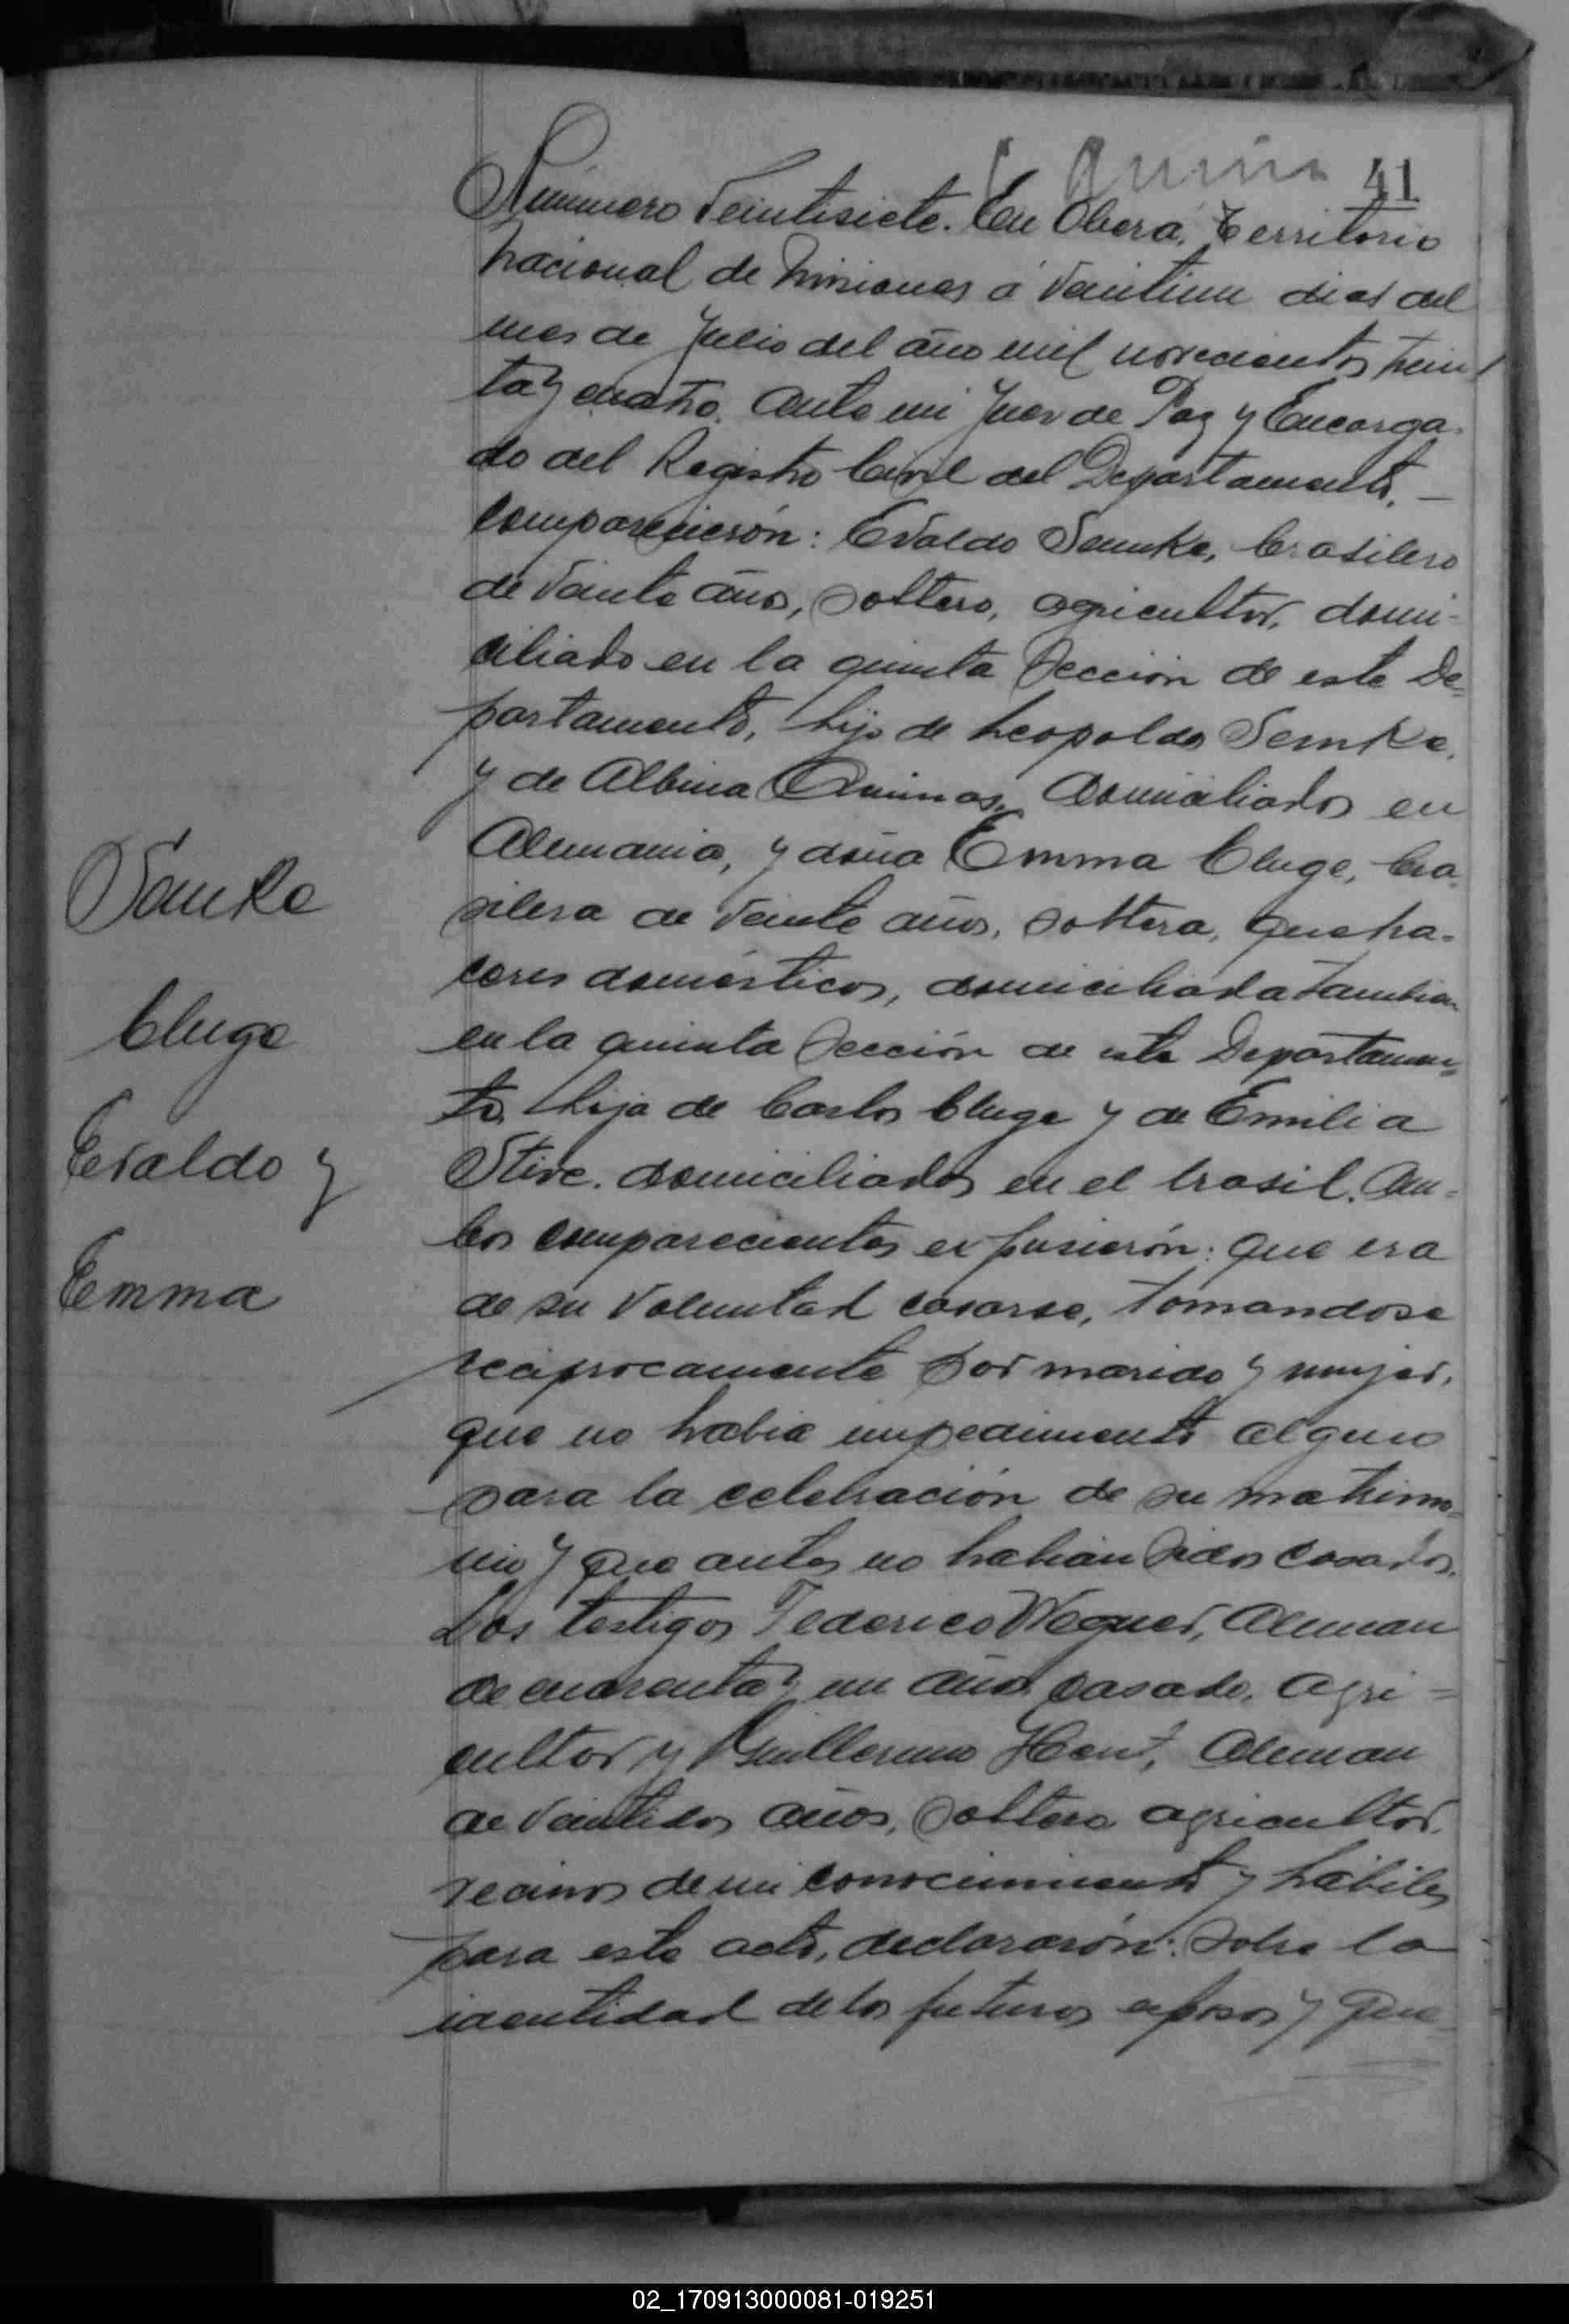 41
Número Veintisiete. En Oberá, Territorio
Nacional de Misiones á Veintiun dias del
mes de Julio del año mil novecientos trein
ta y cuatro. Ante mi Juez de Paz y Encarga-
do del Registro Civil del Departamento, —
comparecierón: Evaldo Semke, brasilero
de veinte años, soltero, agricultor, domi-
ciliado en la quinta Sección de este De=
partamento, hijo de Leopoldo Semke,
y de Albina domiciliados en
Alemania, y doña Emma Cluge, bra
silera de veinte años, soltera, queha-
ceres domésticos, domiciliada tambien
en la quinta Sección de este Departamen=
to, hija de Carlos Cluge y de Emilia
Stive. domiciliados en el brasil. Am=
bos comparecientes expusierón: que era
de su voluntad casarse, tomandose
reciprocamente por marido y mujer,
que no habia impedimento alguno
para la celebración de su matrimo=
nio y que antes no habian sidos casados.
Los testigos Federico Wegner, Aleman
de cuarenta y un años casado, agri=
cultor y Guillermo Aleman
de veintidos años, soltero agricultor,
vecinos de mi conocimiento y hábiles
para este acto, declararón: sobre la
identidad de los futuros esposos y que
Semke
Cluge
Evaldo y
Emma
02_170913000081-019251